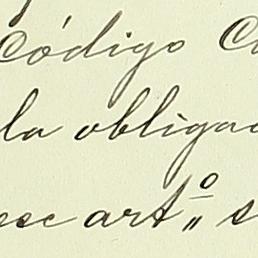 Código C
la obligac
ese art.º s